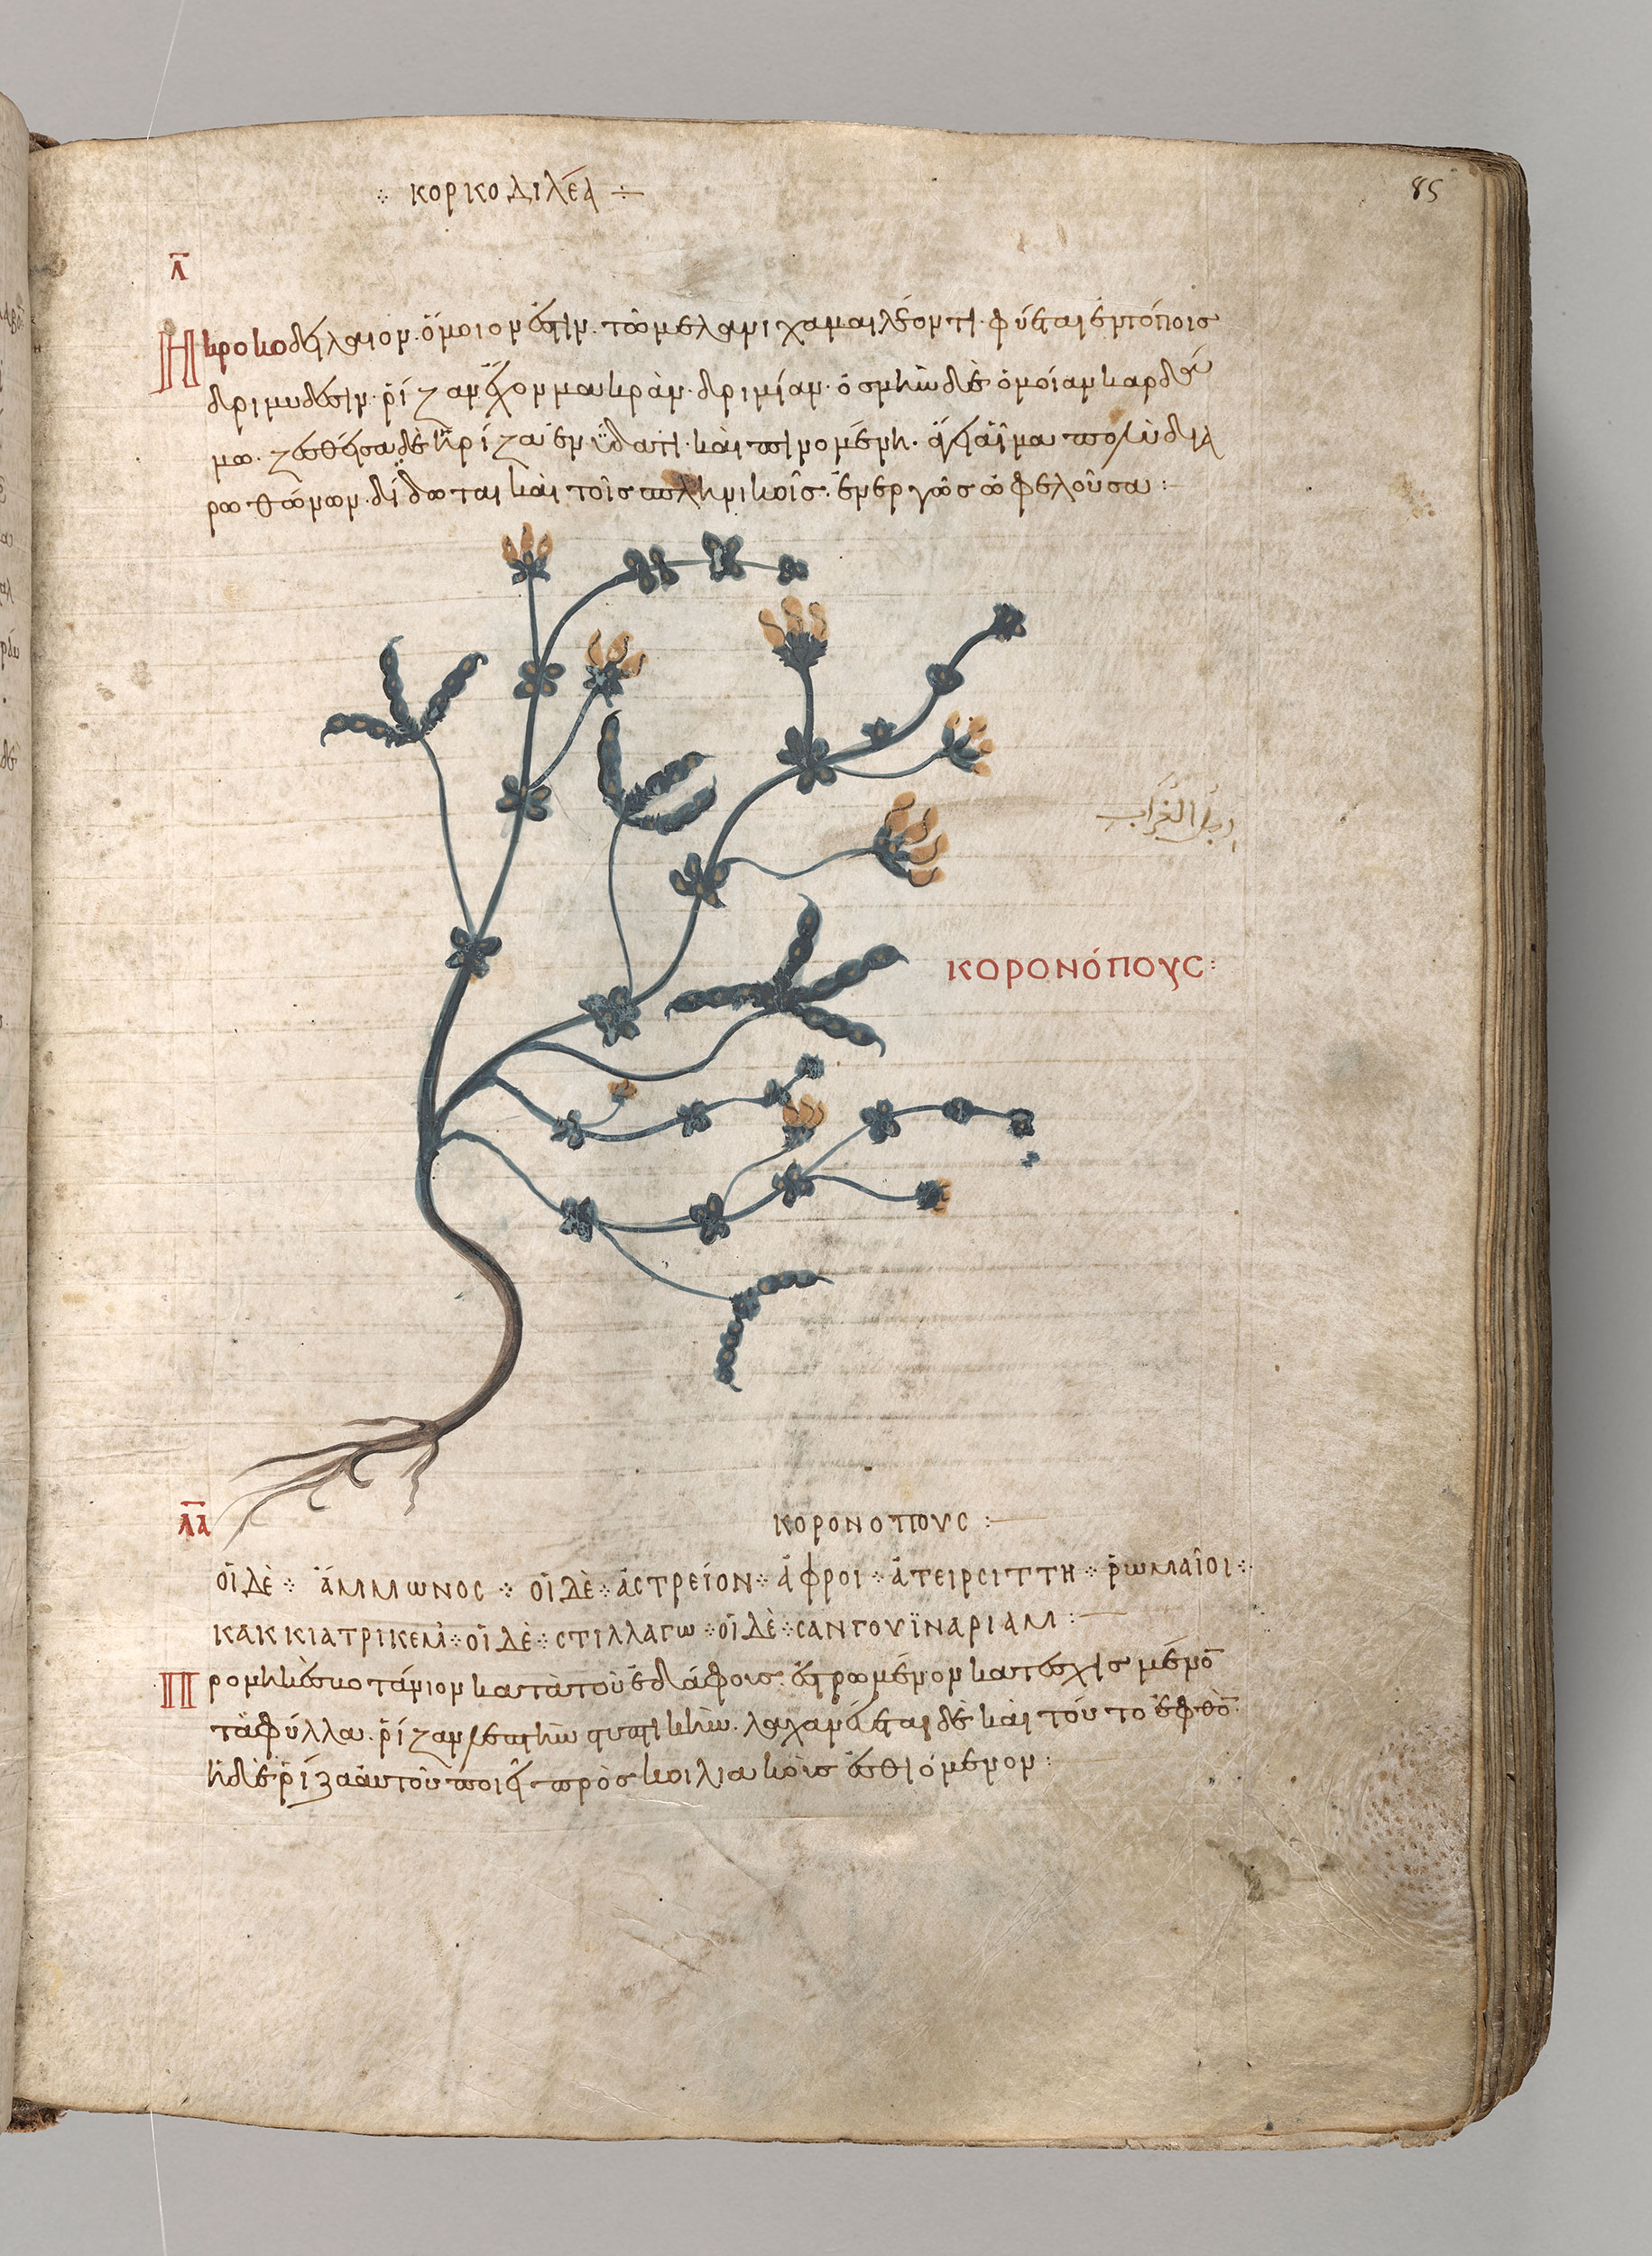 85
·:· ΚΟΡΚΟΔΙΛΈΑ ÷
Λ̅
Η κροκοδείλαιον· ὅμοιον ἐστὶν· τῶ μέλανι χαμαιλέοντι· φύεται ἐν τόποις
δριμυδεσιν· ῥίζαν ἔχον μακρὰν· δριμίαν· ὀσμὴν δὲ ὁμοίαν καρδά
μω· ζεσθεῖσα δὲ ἡ ρίζα ἐν ὕδατι· καὶ πινομένη· ἄγει αἷμα πολὺ διὰ
ρωθώνων· δίδωται καὶ τοῖς σπληνικοῖς· ἐνεργῶς ὠφελοῦσα:
رجل الغراب
ΚΟΡΟΝΌΠΟΥϹ:
Λ̅Α̅
ΚΟΡΟΝΟΠΟΥϹ :—
ΟἹ ΔῈ ·:· ἌΜΜΩΝΟϹ ·:· ΟἹ ΔῈ ·:· ἈϹΤΡΕΊΟΝ ·:· ἌΦΡΟΙ ·:· ἈΤΕΙΡϹΙΤΤΗ ·:· ῬΩΜΑΙ͂ΟΙ ·:·
ΚΑΚΚΙΑΤΡΙΚΕΜ ·:· ΟἹ ΔῈ ·:· ϹΤΙΛΛΑΓΩ ·:· ΟἹ ΔῈ ·:· ϹΑΝΓΟΥΪΝΑΡΙΑΜ :—
Προμηκὲς βοτάνιον κατὰ τοῦ ἐδάφους· ἐστρωμένον κατεσχισμένο̅
τὰ φύλλα· ῥίζαν λεπτὴν στυπτικὴν· λαχανεύεται δὲ καὶ τούτο ἑφθὸ̅·
ἡ δὲ ῥίζα ἀυτοῦ ποιεῖ πρὸς κοιλιακοὺς ἐσθιόμενον: